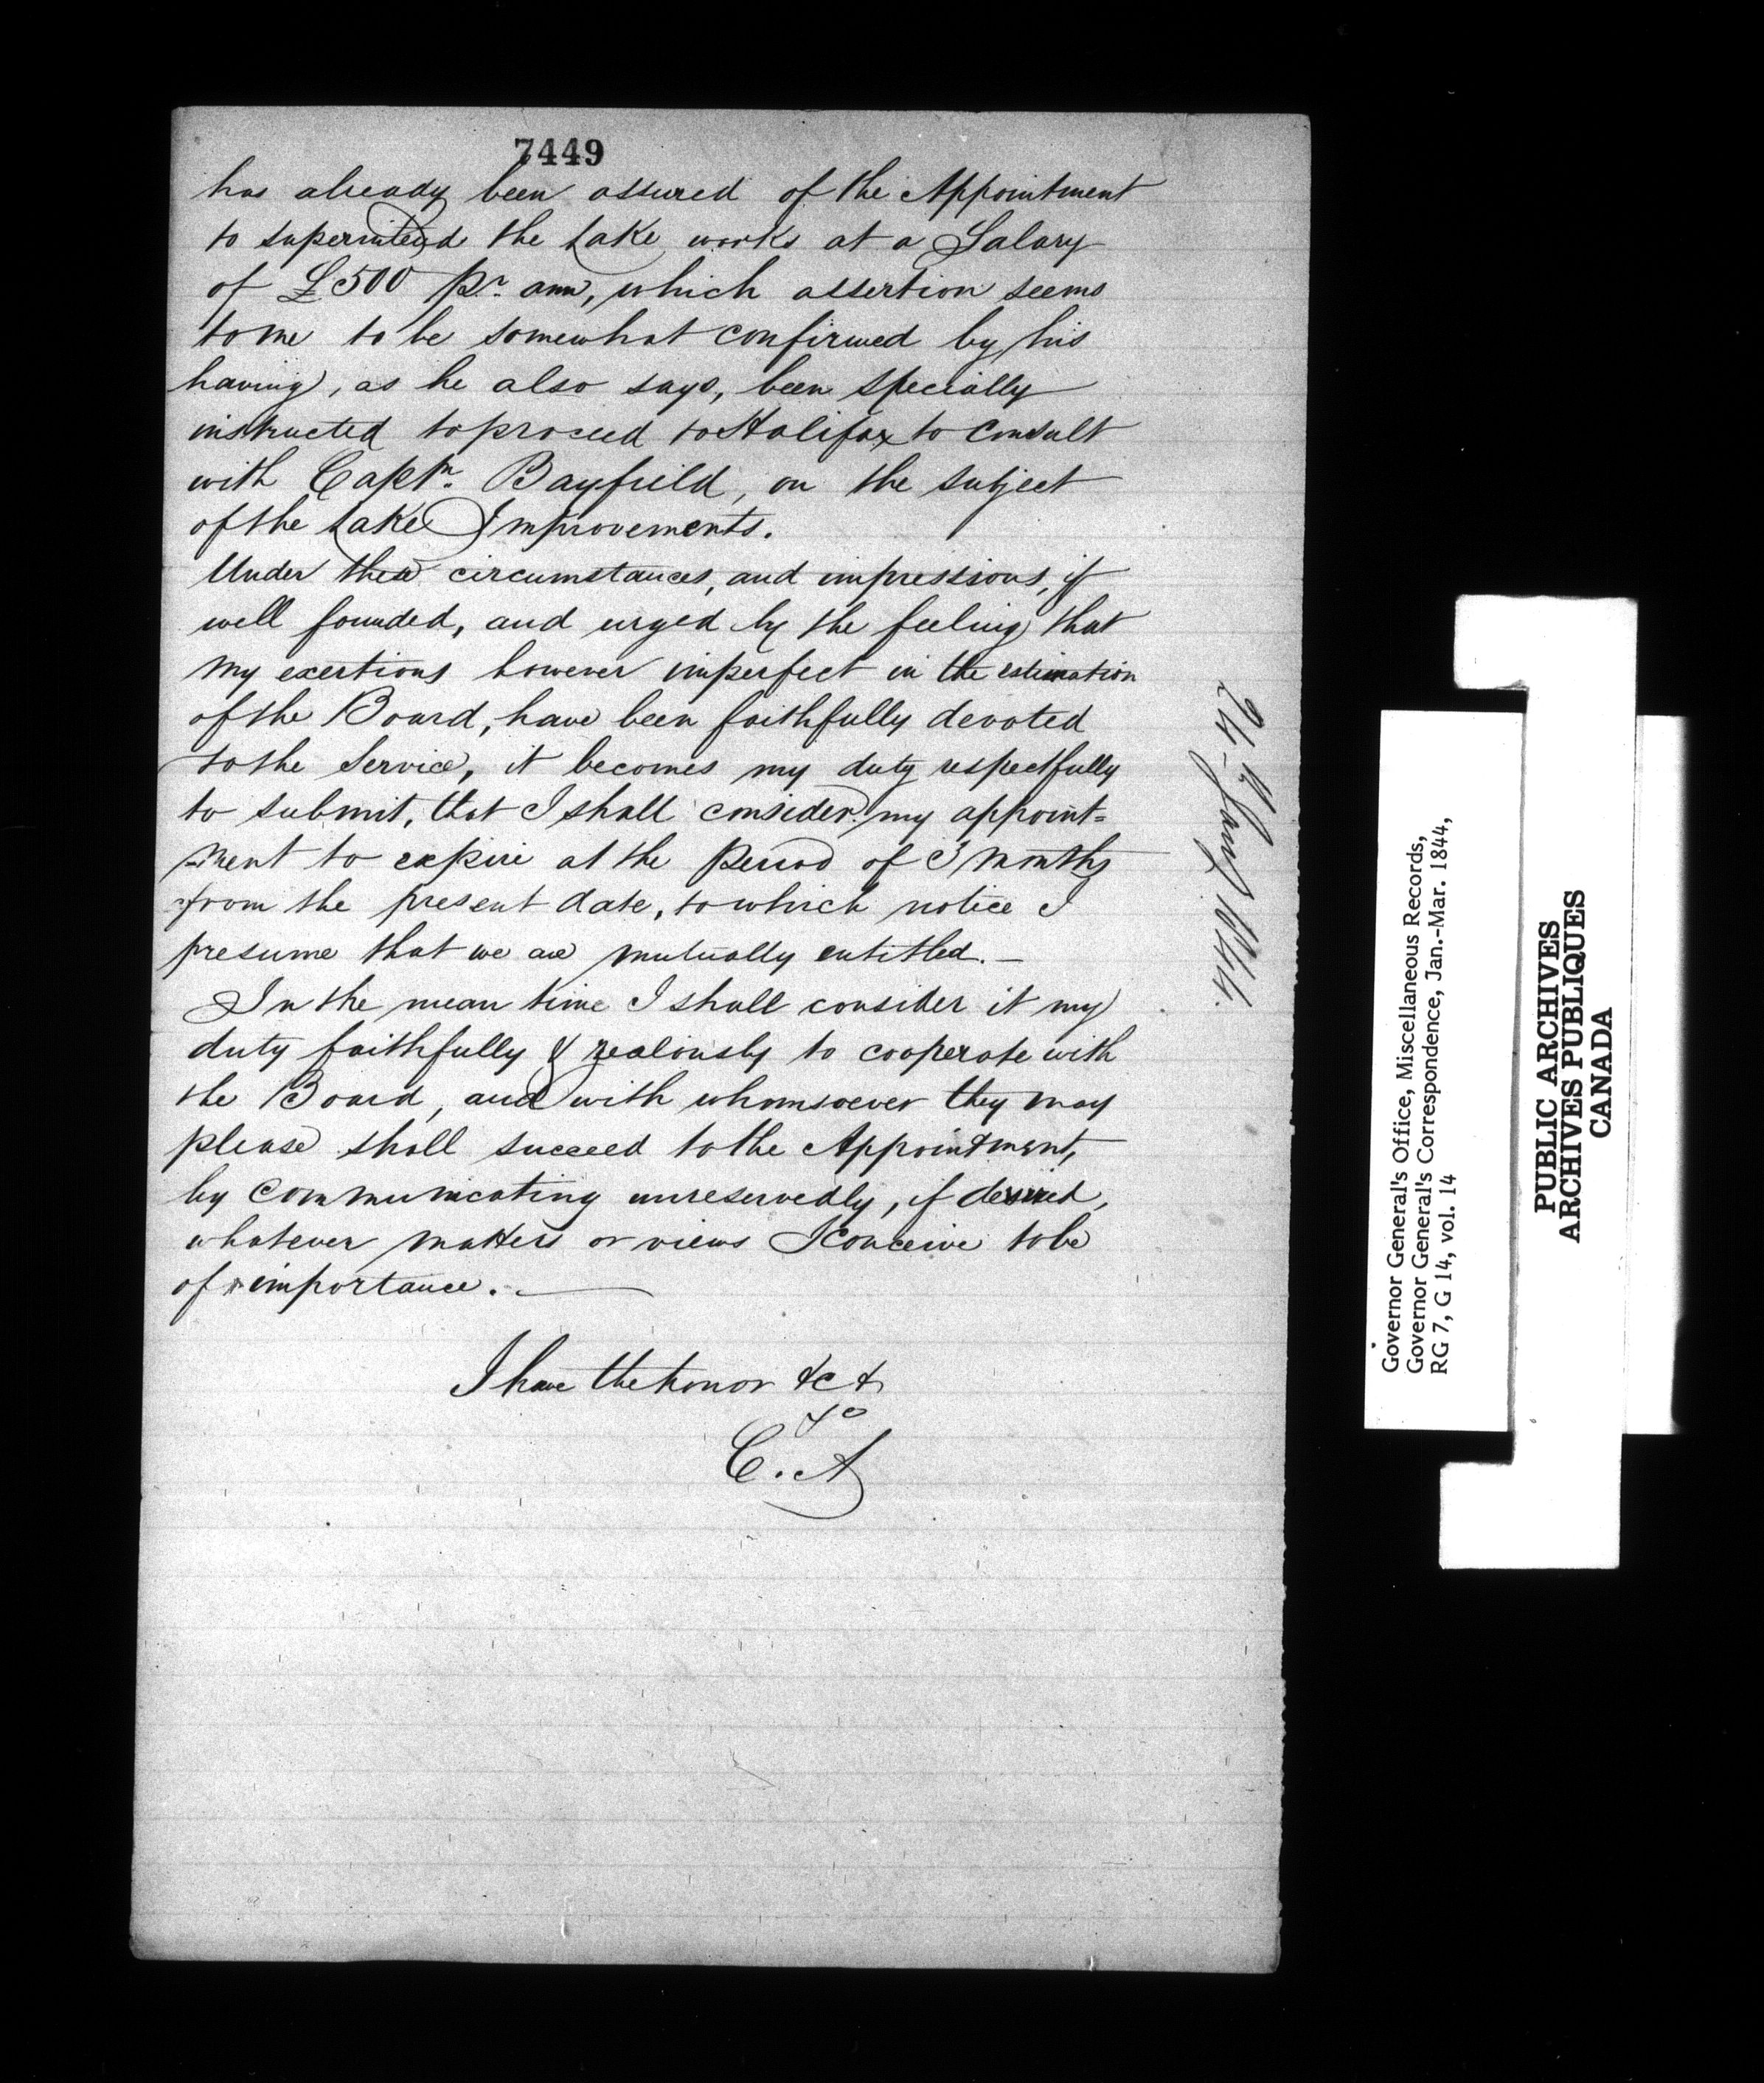 7449
has already been assured of the Appointment
to superintend the Lake works at a Salary
of £500 pr. ann, which assertion seems
to me to be somewhat confirmed by his
having, as he also says, been specially
instructed to proceed to Halifax to consult
with Captn. Bayfield, on the subject
of the Lake Improvements.
Under these circumstances, and impressions, if
well founded, and urged by the feeling that
my exertions however imperfect in the estimation
of the Board, have been faithfully devoted
to the Service, it becomes my duty respectfully
to submit, that I shall consider my appoint=
-ment to expire at the Period of 3 months
from the present date, to which notice I
presume that we are mutually entitled. —
In the mean time I shall consider it my
duty faithfully & zealously to cooperate with
the Board, and with whomsoever they may
please shall succeed to the Appointment,
by communicating unreservedly, if desired,
whatever matters or views I conceive to be
of importance. —
I have the honor &c &
&c
C. A
24 Jany 1844.
Governor General's Office, Miscellaneous Records,
Governor General's Correspondence, Jan.-Mar. 1844,
RG 7, G 14, vol. 14
PUBLIC ARCHIVES
ARCHIVES PUBLIQUES
CANADA